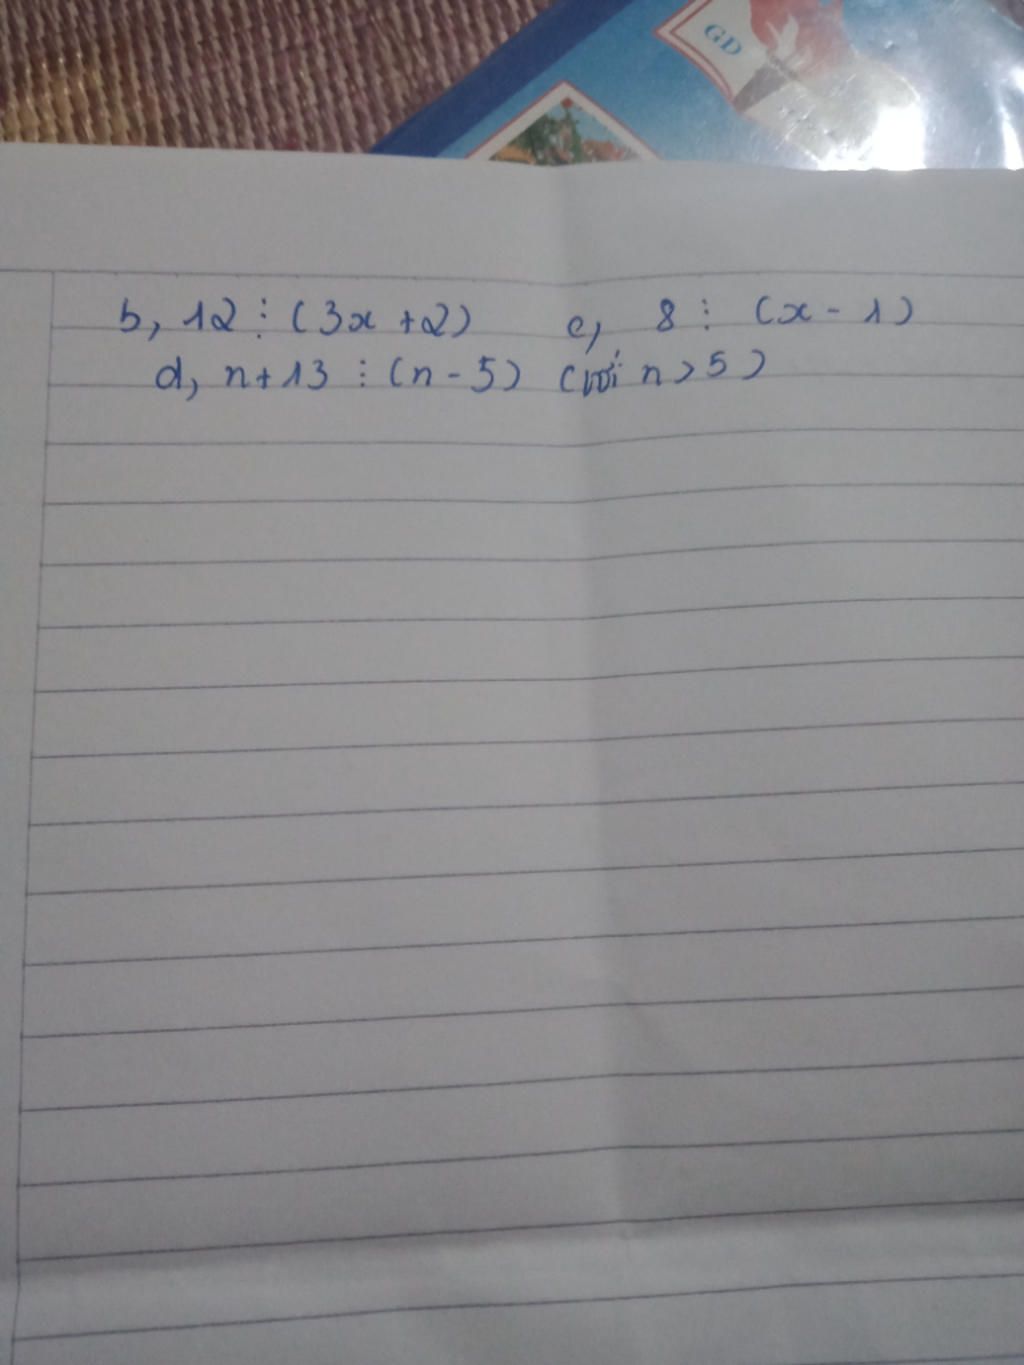 GD
b, 12 ⋮ (3x + 2) c, 8 ⋮ (x - 1)
d, n + 13 ⋮ (n - 5) (với n > 5)